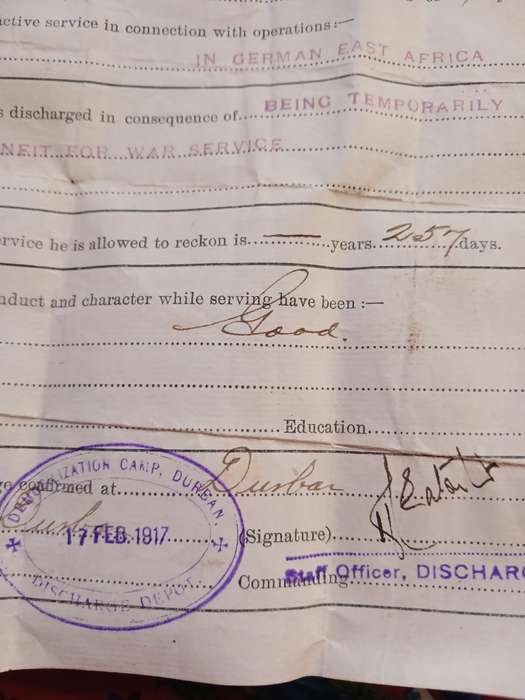 active service in connection with operations:—
IN GERMAN EAST AFRICA
s discharged in consequence of BEING TEMPORARILY
NFIT FOR WAR SERVICE
ervice he is allowed to reckon is — years. 257 days.
nduct and character while serving have been :—
Good.
Education
ge confirmed at Durban
DEMOBILIZATION CAMP, DURBAN.
17 FEB. 1917
DISCHARGE DEPOT.
(Signature)
Commanding
Staff Officer, DISCHARG